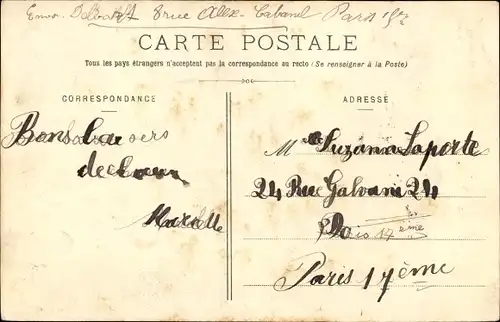 8 rue Alex. Cabanel Paris 15e
CARTE POSTALE
Tous les pays étrangers n'acceptent pas la correspondance au recto (Se renseigner à la Poste)
CORRESPONDANCE
ADRESSE
Bons
de
Marcelle
Suzanne Laporte
24 Rue Galvani 24
17ème
Paris 17ème